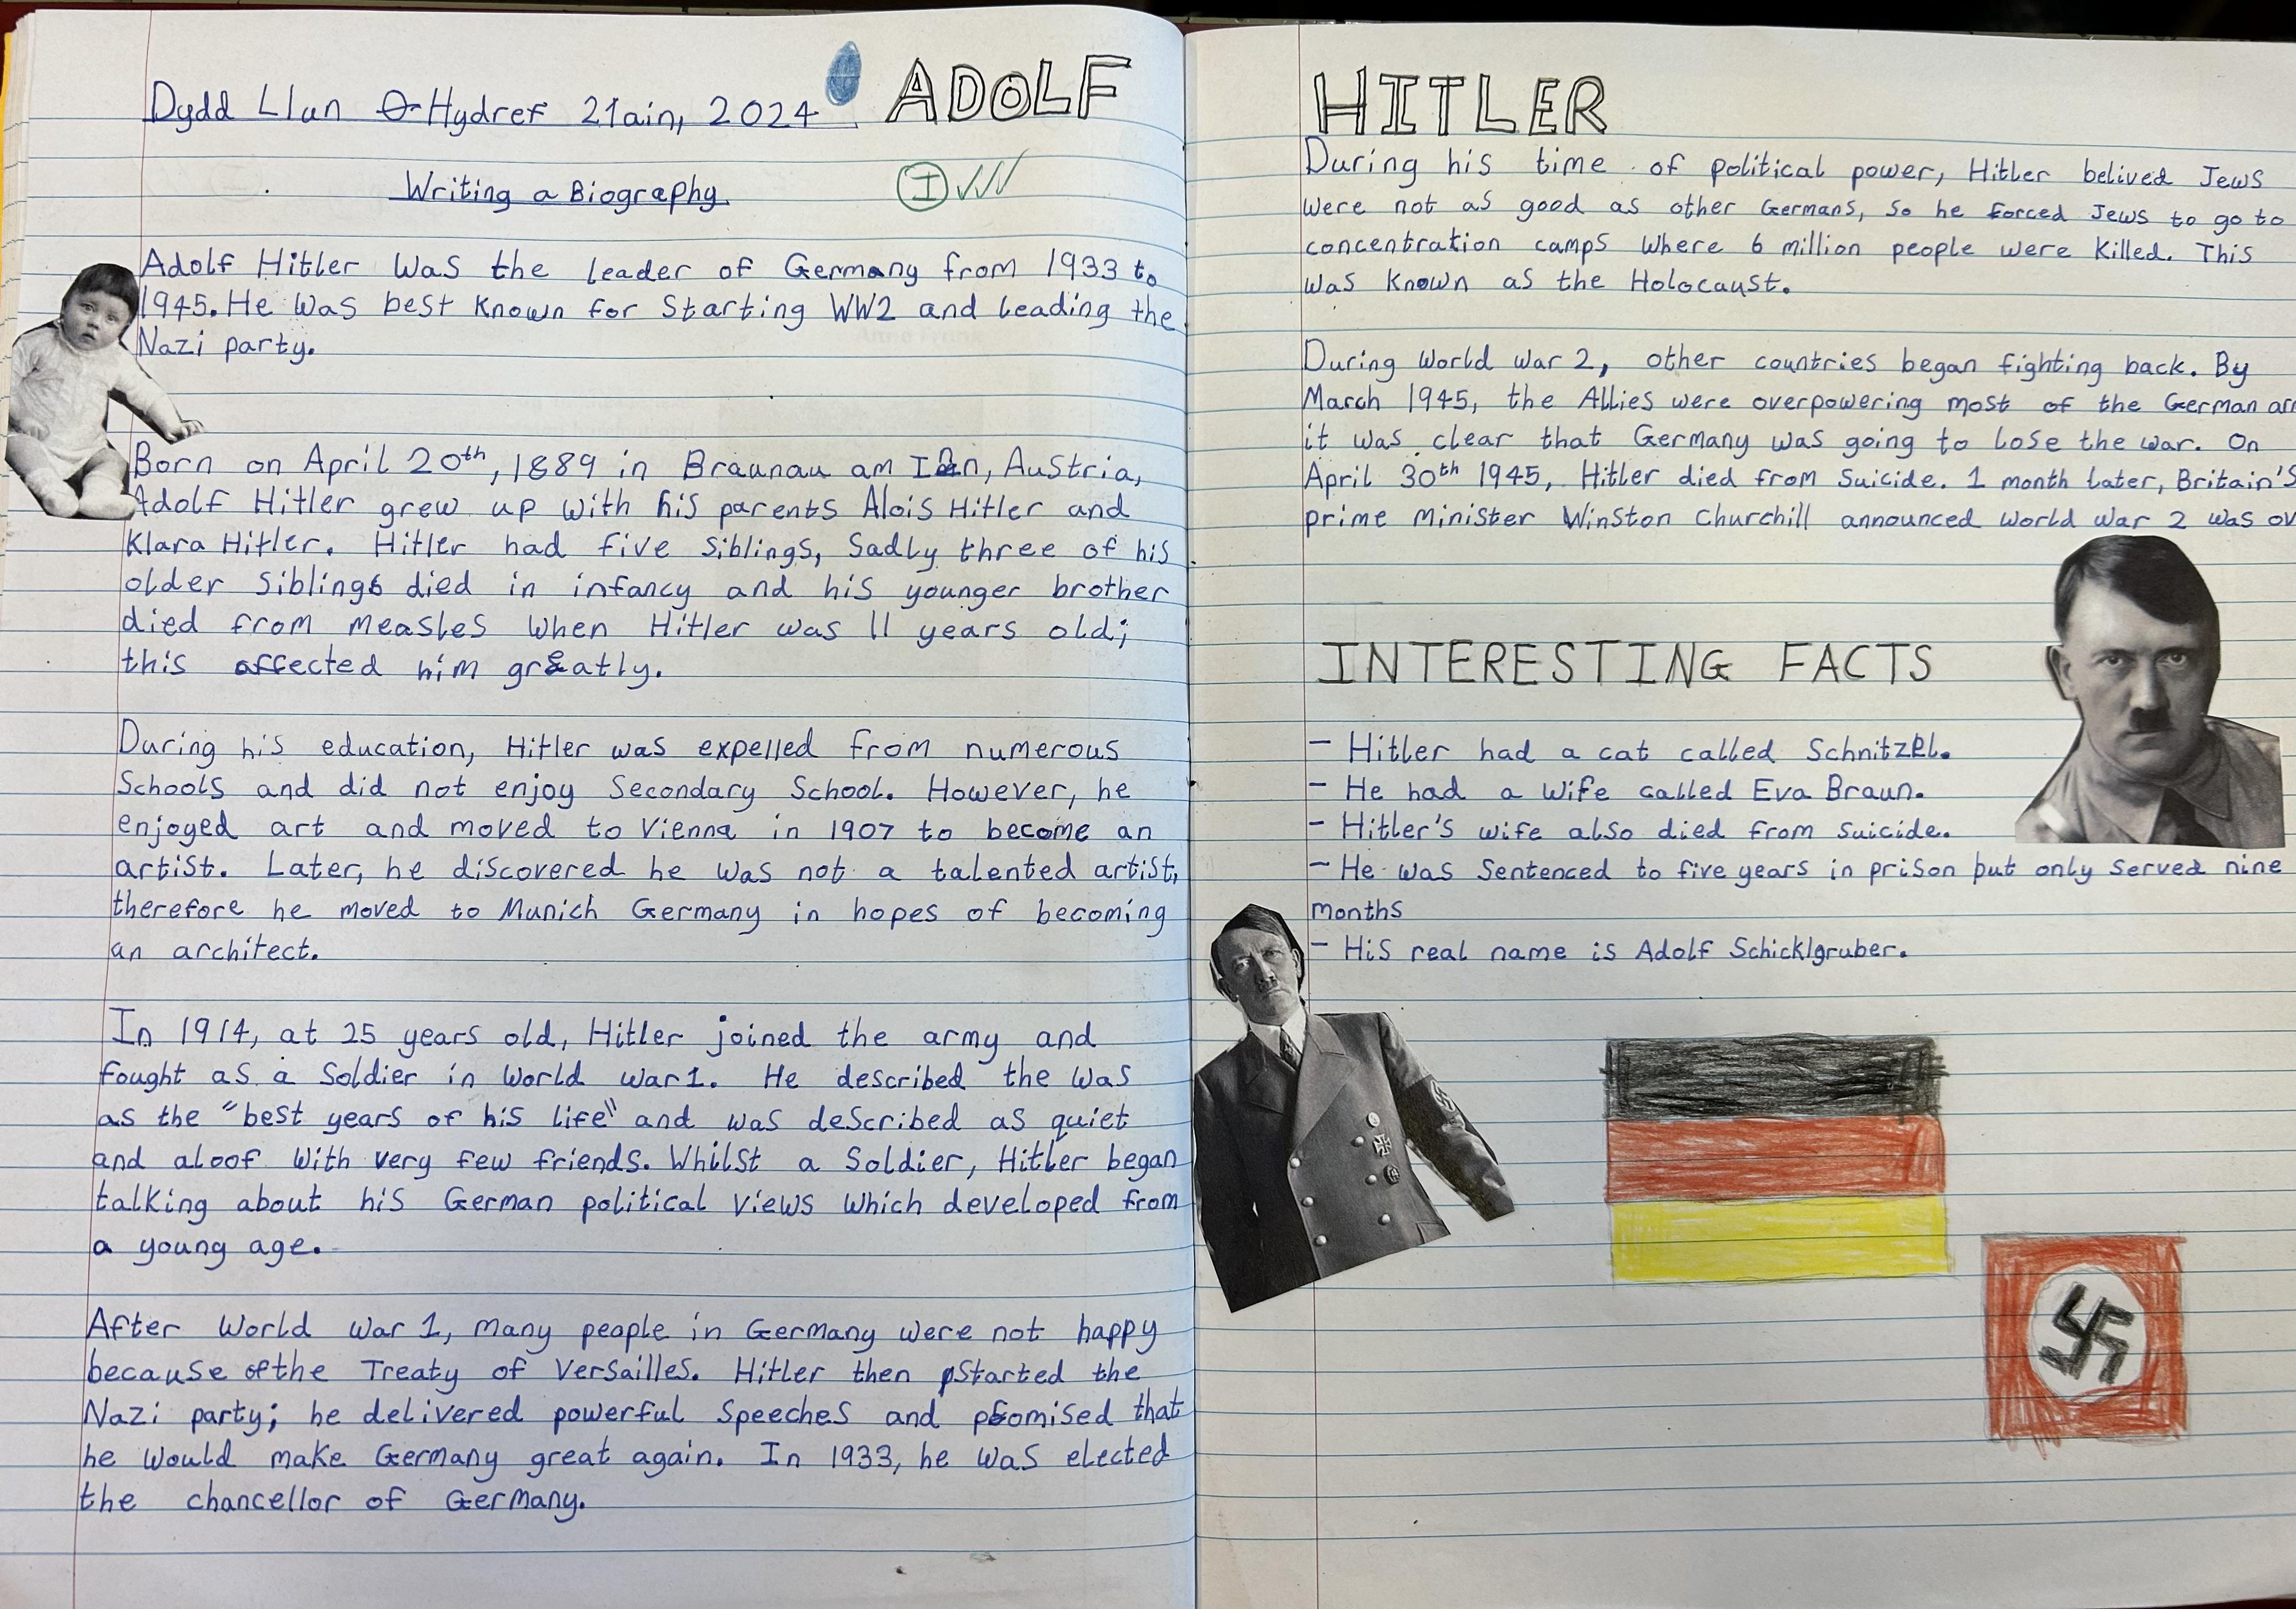 Dydd Llun Hydref 21ain, 2024
ADOLF
Writing a Biography
I
Adolf Hitler was the leader of Germany from 1933 to
1945. He was best known for starting WW2 and leading the
Nazi party.
Born on April 20th, 1889 in Braunau am Inn, Austria,
Adolf Hitler grew up with his parents Alois Hitler and
Klara Hitler. Hitler had five siblings, sadly three of his
older siblings died in infancy and his younger brother
died from measles when Hitler was 11 years old;
this affected him greatly.
During his education, Hitler was expelled from numerous
schools and did not enjoy secondary school. However, he
enjoyed art and moved to Vienna in 1907 to become an
artist. Later, he discovered he was not a talented artist,
therefore he moved to Munich Germany in hopes of becoming
an architect.
In 1914, at 25 years old, Hitler joined the army and
fought as a soldier in world war 1. He described the was
as the "best years of his life" and was described as quiet
and aloof with very few friends. Whilst a soldier, Hitler began
talking about his German political views which developed from
a young age.
After World war 1, many people in Germany were not happy
because of the Treaty of Versailles. Hitler then started the
Nazi party; he delivered powerful speeches and promised that
he would make Germany great again. In 1933, he was elected
the chancellor of Germany.
HITLER
During his time of political power, Hitler belived Jews
were not as good as other Germans, so he forced Jews to go to
concentration camps where 6 million people were killed. This
was known as the Holocaust.
During World War 2, other countries began fighting back. By
March 1945, the Allies were overpowering most of the German
it was clear that Germany was going to lose the war. On
April 30th 1945, Hitler died from suicide. 1 month later, Britain's
prime minister Winston Churchill announced world war 2 was
INTERESTING FACTS
- Hitler had a cat called Schnitzel.
- He had a wife called Eva Braun.
- Hitler's wife also died from suicide.
- He was sentenced to five years in prison but only served nine
months
- His real name is Adolf Schicklgruber.